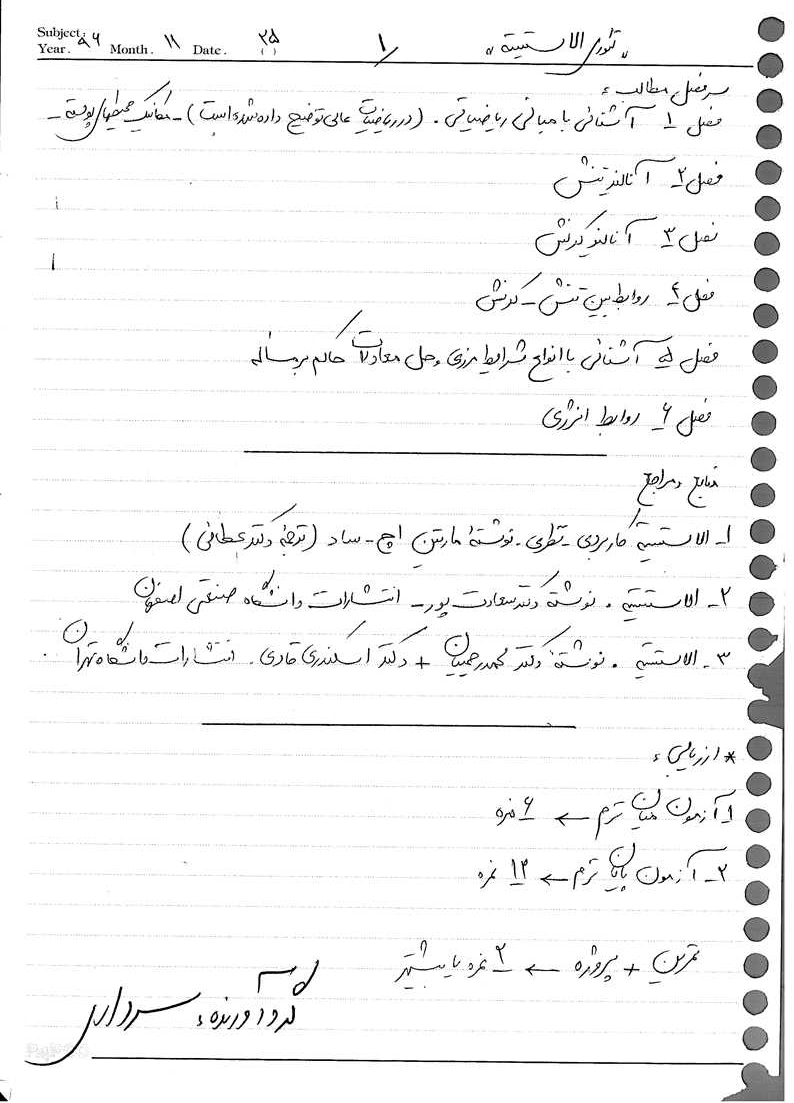 Subject:
Year. ۹۶ Month. ۱۱ Date. ۲۵
( )
۱
"تئوری الاستیسیته"
سرفصل مطالب:
فصل ۱ آشنائی با مبانی ریاضیاتی. (در ریاضیات عالی توضیح داده شده است) - مکانیک محیطهای پیوسته -
فصل ۲ آنالیز تنش
فصل ۳ آنالیز کرنش
فصل ۴ روابط بین تنش - کرنش
فصل ۵ آشنائی با انواع شرایط مرزی و حل معادلات حاکم بر مسأله
فصل ۶ روابط انرژی
منابع و مراجع
۱- الاستیسیته کاربردی - تئوری - نوشتهٔ مارتین اچ - ساد (ترجمهٔ دکتر عطائی)
۲- الاستیسیته. نوشته دکتر سعادت پور - انتشارات دانشگاه صنعتی اصفهان
۳- الاستیسیته. نوشتهٔ دکتر محمد رحیمیان + دکتر اسکندری قادی. انتشارات دانشگاه تهران.
* ارزیابی:
۱ آزمون میان ترم ← ۶ نمره
۲- آزمون پایان ترم ← ۱۲ نمره
تمرین + پروژه ← ۲ نمره یا بیشتر
گردآورنده: